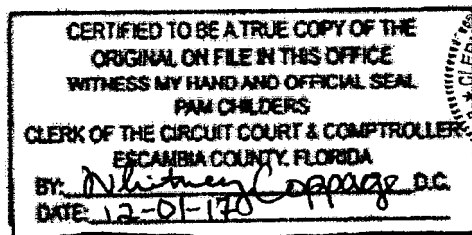 CERTIFIED TO BE A TRUE COPY OF THE
ORIGINAL ON FILE IN THIS OFFICE
WITNESS MY HAND AND OFFICIAL SEAL
PAM CHILDERS
CLERK OF THE CIRCUIT COURT & COMPTROLLER
ESCAMBIA COUNTY, FLORIDA
BY: Whitney Coppage D.C.
DATE: 12-01-17